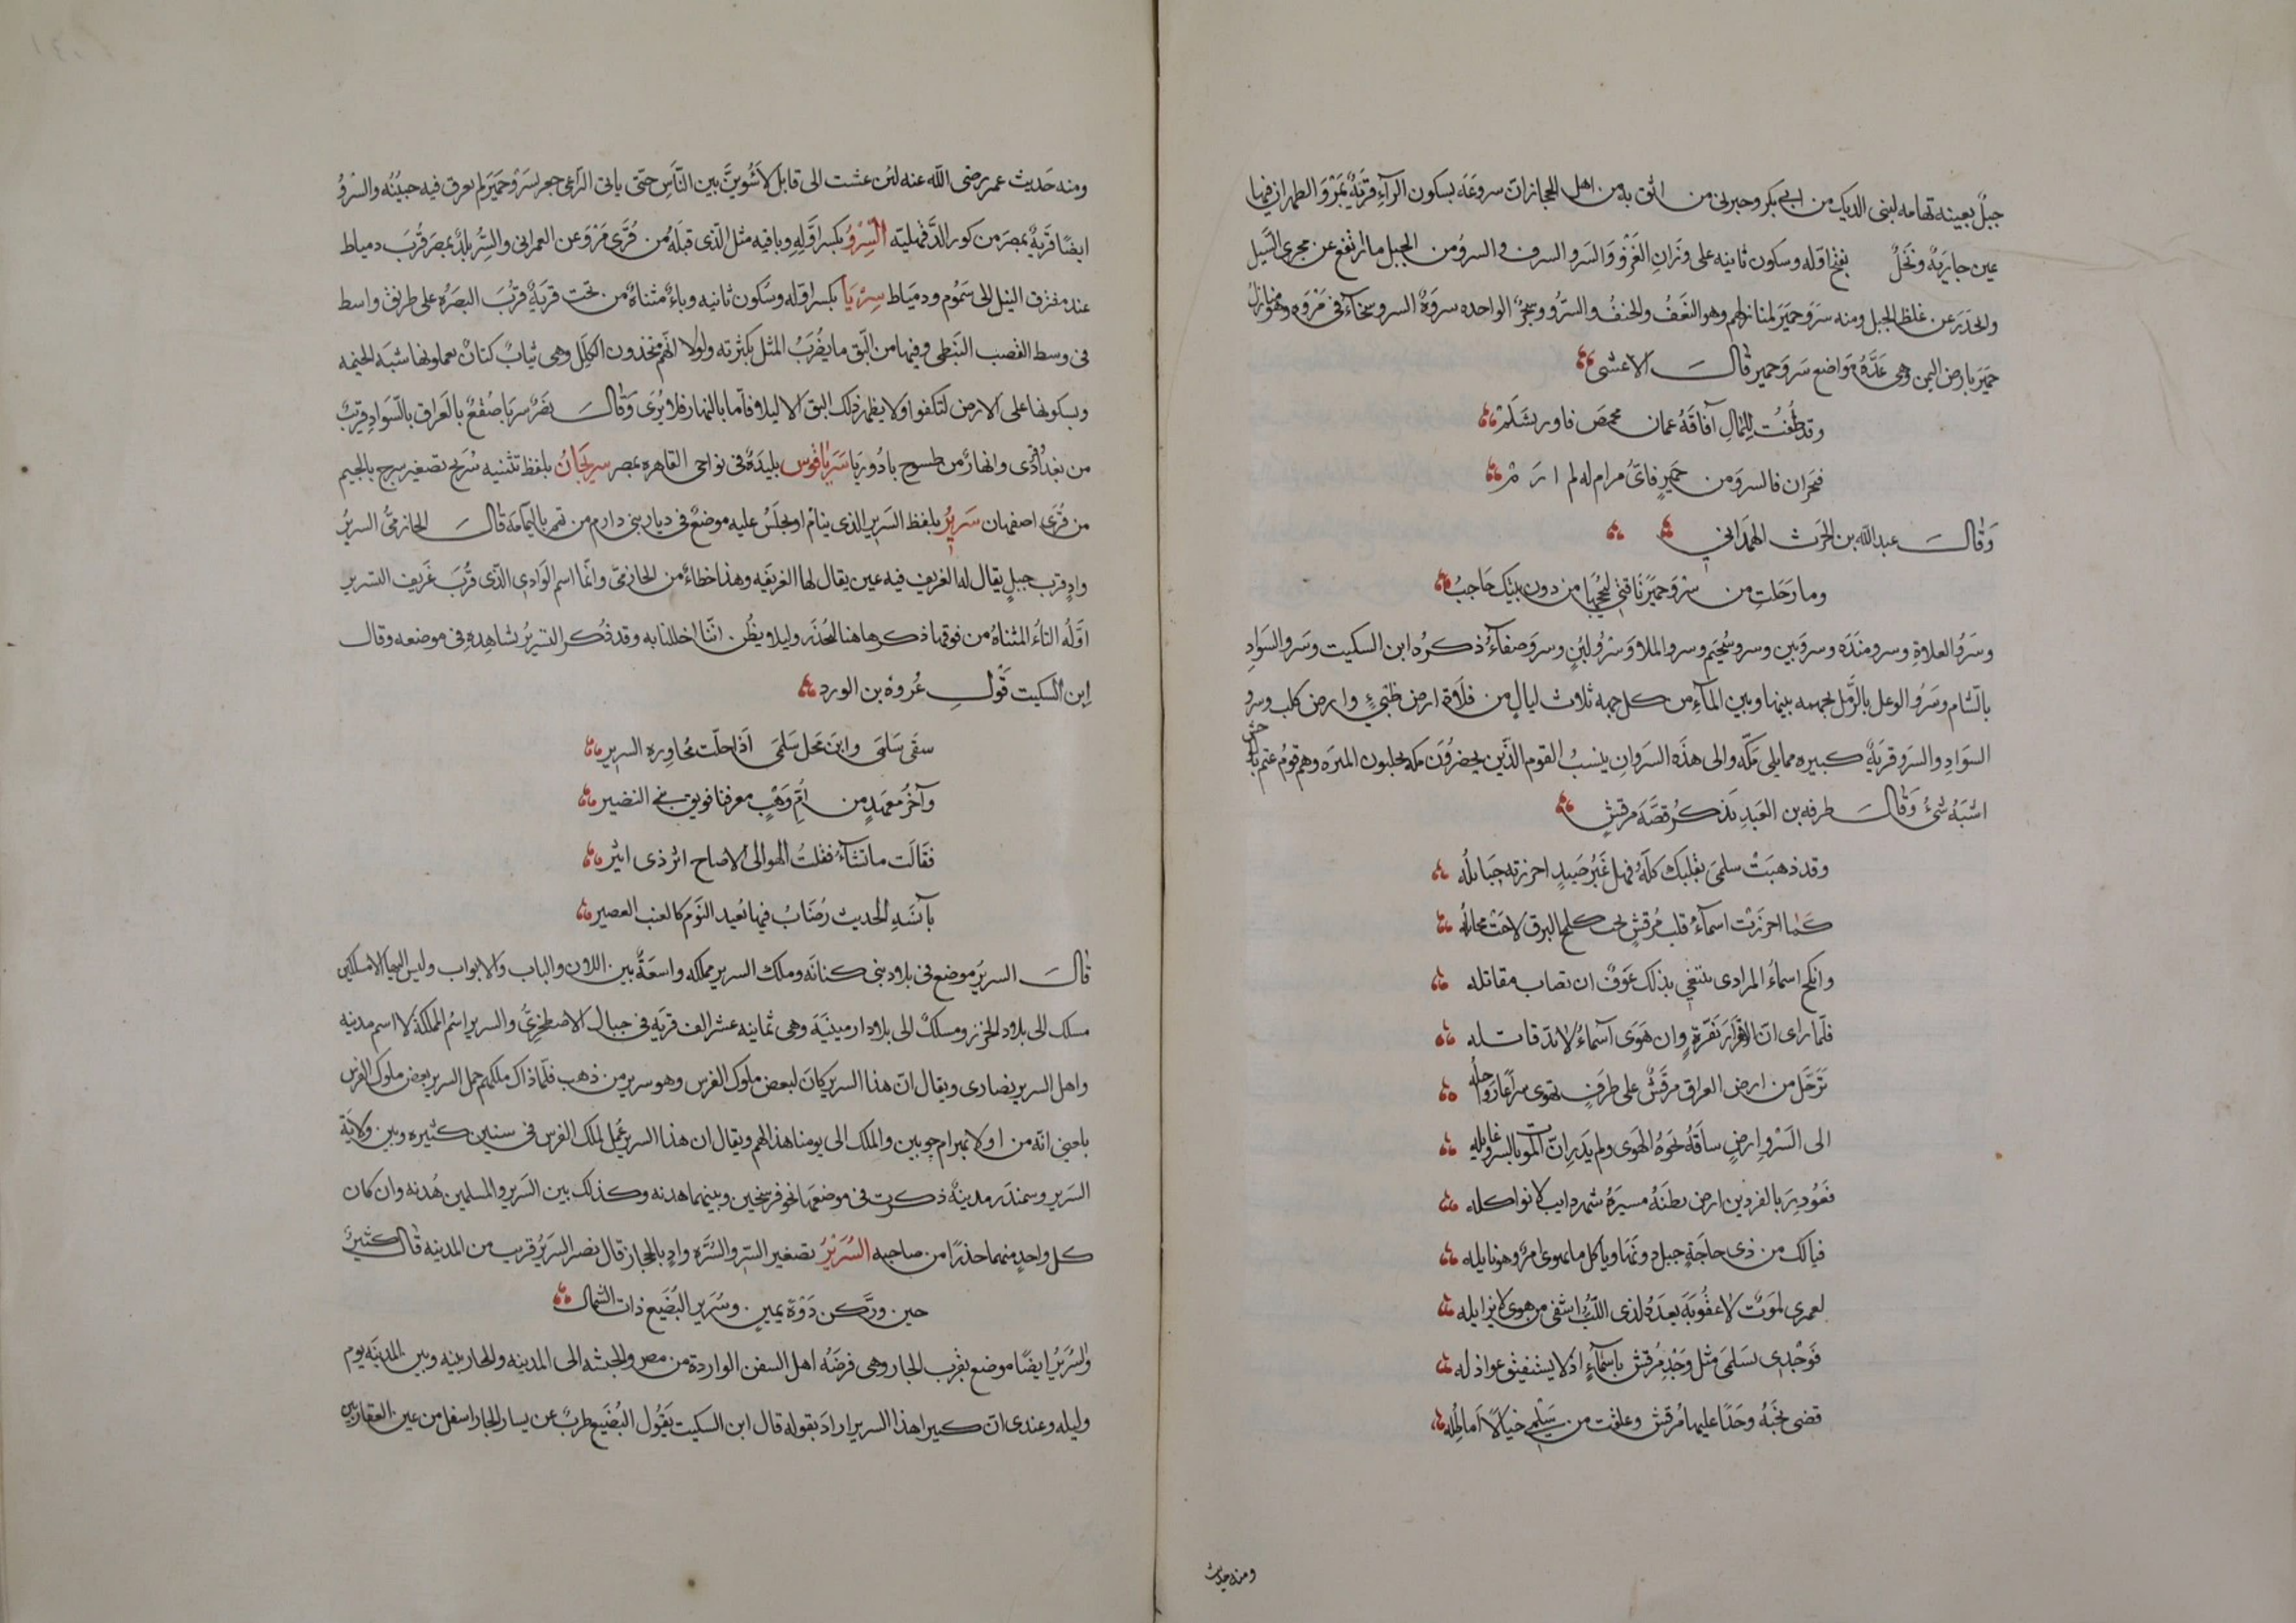 جبل بعينه تهامه لبنى الديك من ابى بكر وخبرنى من اثق به من اهل الحجاز ان سروعة بسكون الرآء قرية بمر والظهران فيها
عين جارية ونخل بفتح اوله وسكون ثانيه على وزان الغزو والسرو الشرف والسرو من الجبل ما ارتفع عن مجرى السيل
وانحدر عن غلظ الجبل ومنه سرو حمير لمنازلهم وهو النعف والخيف والسرو شجر الواحده سروة السرو سخاء فى مروه وهو منازل
حمير بارض اليمن وهى عدة مواضع سرو حمير قال الاعشى
وقد طفت للمال آفاقه عمان فحمص فاوريشلم
فنجران فالسرو من حمير فاى مرام له لم ارم
وقال عبد الله بن الحرث الهمدانى
وما رحلت من سرو حمير ناقتى ليحجبها من دون بيتك حاجب
وسرو العلاة وسرو مندد وسرو بين وسرو سحيم وسرو الملا وسرو لبن وسرو صفآء ذكره ابن السكيت وسرو السواد
بالشام وسرو الوعل بالرمل بجهمه بينها وبين المآء من كل جهة ثلاث ليال من فلاة ارض طيئ وارض كلب وسرو
السواد والسرو قرية كبيره مما يلى مكه والى هذه السروان ينسب القوم الذين يحضرون مكه يجلبون الميره وهم قوم غتم بالوحش
اشبه شئ وقال طرفه بن العبد يذكر قصة مرقش
وقد ذهبت سلمى بقلبك كله فهل غير صيد احرزته حبائله
كما احرزت اسمآء قلب مرقش بحب كلمح البرق لاحت مخايله
وانكح اسماء المرادى يبتغى بذلك عوف ان تصاب مقاتله
فلما راى ان لا قرار يقره وان هوى اسماء لا بد قاتله
ترحل من ارض العراق مرقش على طرف تهوى سراعا رواحله
الى السرو ارض ساقه نحوه الهوى ولم يدر ان الموت بالسرو غايله
فغودر بالفردين ارض نطية مسيرة شهر دايب لا تواكله
فيالك من ذى حاجة حيل دونها وما كل ما يهوى امرؤ هو نايله
لعمرى لموت لا عقوبة بعده لذى اللب اشفى من هوى لا يزايله
فوجدى بسلمى مثل وجد مرقش باسمآء اذ لا يستفيق عواذله
قضى نحبه وجدا عليها مرقش وعلقت من سلمى خيالا اماطله
ومنه حديث
ومنه حديث عمر رضى الله عنه لئن عشت الى قابل لاسوين بين الناس حتى ياتى الراعى حجر بسرو حمير لم يعرق فيه جبينه والسرو
ايضا قرية بمصر من كور الدقهلية السرو بكسر اوله وباقيه مثل الذى قبله من قرى مرو عن العمرانى والسرو بلد بمصر قرب دمياط
عند مفترق النيل الى شموم ودمياط سريا بكسر اوله وسكون ثانيه وياء مثناة من تحت قرية قرب البصره على طريق واسط
فى وسط القصب النبطى وفيها من البق ما يضرب المثل بكثرته ولولا انهم يتخذون الكلل وهى ثياب كتان يعملونها شبه الخيمه
ويسكونها على الارض لتكفوا ولا يظهر ذلك البق الا ليلا فاما بالنهار فلا يرى وقال نصر سريا صقع بالعراق بالسواد قريب
من بغداد وقرى وانهار من طسوج بادوريا سرياقوس بليدة فى نواحى القاهره بمصر سريجان بلفظ تثنيه سريج تصغير سرج بالجيم
من قرى اصفهان سرير بلفظ السرير الذى ينام او يجلس عليه موضع فى ديار بنى دارم من تميم باليمامة قال الحازمى السرير
واد قرب جبل يقال له الغريف فيه عين يقال لها الغريفه وهذا خطاء من الحازمى وانما اسم الوادى الذى قرب غريف التسرير
اوله التاء المثناة من فوقها ذكرها هنا ليحذر ولئلا يظن اننا اخللنا به وقد ذكر التسرير بشاهده فى موضعه وقال
ابن السكيت قول عروة بن الورد
سقى سلمى واين محل سلمى اذا حلت مجاوره السرير
وآخر معهد من ام وهب معرسنا فويق بنى النضير
فقالت ما تشآء فقلت الهو الى الاصباح اثر ذى اثير
بآنسة الحديث رضاب فيها بعيد النوم كالعنب العصير
قال السرير موضع فى بلاد بنى كنانة وملك السرير مملكه واسعة بين اللان والباب والابواب وليس اليها الا مسلكين
مسلك الى بلاد الخزر ومسلك الى بلاد ارمينية وهى ثمانيه عشر الف قرية فى جبال الاصطخرى والسرير اسم المملكة لا اسم مدينه
واهل السرير نصارى ويقال ان هذا السرير كان لبعض ملوك الفرس وهو سرير من ذهب فلما ذاك ملكهم حمل السرير بعض ملوك الفرس
بلغنى انه من اولاد بهرام جوبين والملك الى يومنا هذا لهم ويقال ان هذا السرير عمل لملك الفرس فى سنين كثيره وبين ولاية
السرير وسمندر مدينة ذكرت فى موضعها نحو فرسخين وبينهما هدنه وكذلك بين السرير والمسلمين هدنه وان كان
كل واحد منهما حذرا من صاحبه السرير تصغير السر والسره واد بالحجاز قال نصر السرير قريب من المدينه قال كثير
حين وركن دوة بيمين وسرير البضيع ذات الشمال
والسرير ايضا موضع بقرب الجار وهى فرضة اهل السفن الواردة من مصر والحبشه الى المدينه والجار بينه وبين المدينه يوم
وليله وعندى ان كثيرا هذا السرير اراد بقوله قال ابن السكيت يقول البضيع ظرب عن يسار الجار اسفل من عين الغفاريين